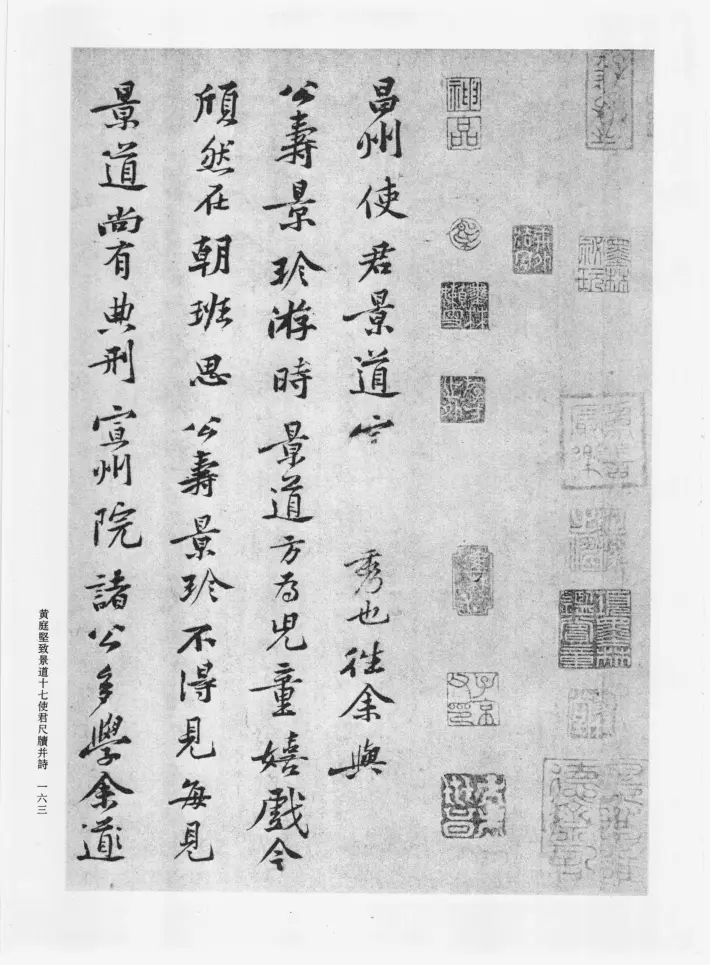 墨林祕玩
項墨林鑑賞章
神品
子京父印
昌州使君景道 秀也往余與
公壽景珍游時景道方為兒童嬉戲今
頎然在朝班思公壽景珍不得見每見
景道尚有典刑宣州院諸公多學余
黄庭堅致景道十七使君尺牘并詩 一六三